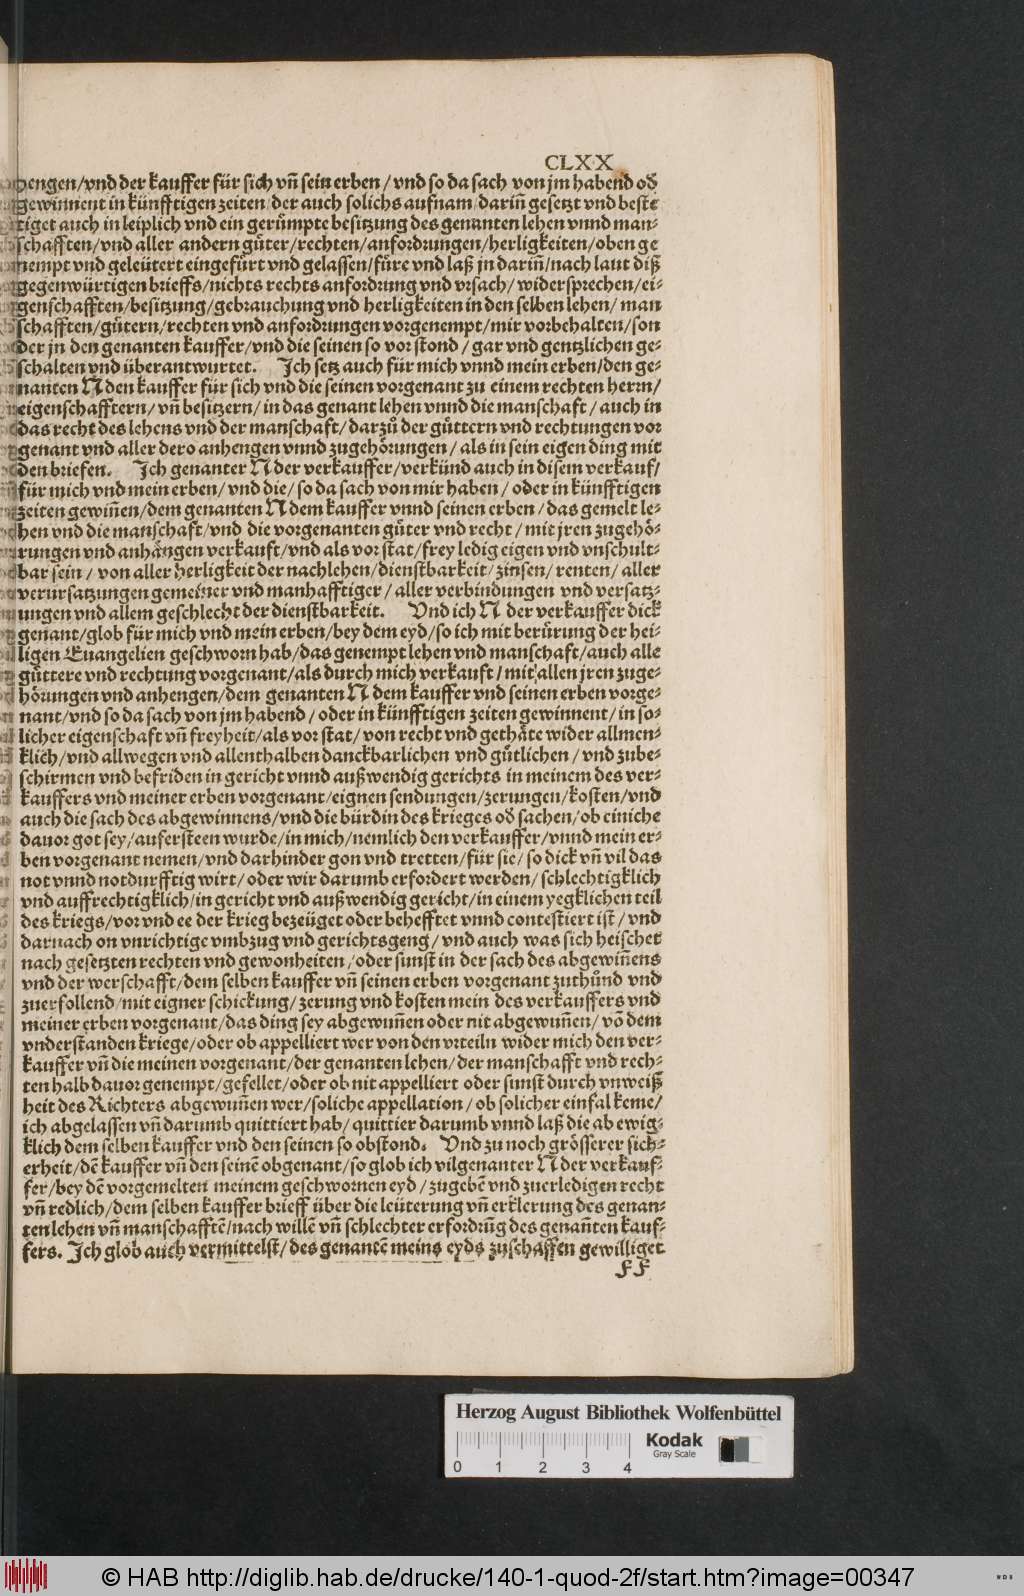 CLXX
hengen/vnd der kauffer für sich vn̄ sein erben/vnd so da sach von jm habend od̕
gewinnent in künfftigen zeiten/der auch solichs aufnam/darin̄ gesetzt vnd beste
tiget auch in leiplich vnd ein gerümpte besitzung des genanten lehen vnnd man⸗
schafften/vnd aller andern gůter/rechten/anfordrungen/herligkeiten/oben ge
nempt vnd geleütert eingefürt vnd gelassen/füre vnd laß jn darin̄/nach laut diß
gegenwürtigen brieffs/nichts rechts anfordrung vnd vrsach/widersprechen/ei⸗
genschafften/besitzung/gebrauchung vnd herligkeiten in den selben lehen/man
schafften/gütern/rechten vnd anfordrungen vorgenempt/mir vorbehalten/son
der jn den genanten kauffer/vnd die seinen so vor stond/gar vnd gentzlichen ge⸗
schalten vnd überantwurtet. Ich setz auch für mich vnnd mein erben/den ge⸗
nanten N den kauffer für sich vnd die seinen vorgenant zu einem rechten herrn/
eigenschafftern/vn̄ besitzern/in das genant lehen vnnd die manschaft/auch in
das recht des lehens vnd der manschaft/darzů der güttern vnd rechtungen vor
genant vnd aller dero anhengen vnnd zugehörungen/als in sein eigen ding mit
den briefen. Ich genanter N der verkauffer/verkünd auch in disem verkauf/
für mich vnd mein erben/vnd die/so da sach von mir haben/oder in künfftigen
zeiten gewin̄en/dem genanten N dem kauffer vnnd seinen erben/das gemelt le⸗
hen vnd die manschaft/vnd die vorgenanten güter vnd recht/mit jren zugehö⸗
rungen vnd anhängen verkauft/vnd als vor stat/frey ledig eigen vnd vnschult⸗
bar sein/von aller herligkeit der nachlehen/dienstbarkeit/zinsen/renten/aller
verursatzungen gemeiner vnd manhafftiger/aller verbindungen vnd versatz⸗
ungen vnd allem geschlecht der dienstbarkeit. Vnd ich N der verkauffer dick
genant/glob für mich vnd mein erben/bey dem eyd/so ich mit berürung der hei⸗
ligen Euangelien geschworn hab/das genempt lehen vnd manschaft/auch alle
güttere vnd rechtung vorgenant/als durch mich verkauft/mit allen jren zuge⸗
hörungen vnd anhengen/dem genanten N dem kauffer vnd seinen erben vorge⸗
nant/vnd so da sach von jm habend/oder in künfftigen zeiten gewinnent/in so⸗
licher eigenschaft vn̄ freyheit/als vor stat/von recht vnd gethäte wider allmen⸗
klich/vnd allwegen vnd allenthalben danckbarlichen vnd gütlichen/vnd zube⸗
schirmen vnd befriden in gericht vnnd außwendig gerichts in meinem des ver⸗
kauffers vnd meiner erben vorgenant/eignen sendungen/zerungen/kosten/vnd
auch die sach des abgewinnens/vnd die bürdin des krieges od̕ sachen/ob einiche
dauor got sey/aufersteen wurde/in mich/nemlich den verkauffer/vnnd mein er⸗
ben vorgenant nemen/vnd darhinder gon vnd tretten/für sie/so dick vn̄ vil das
not vnnd notdurfftig wirt/oder wir darumb erfordert werden/schlechtigklich
vnd auffrechtigklich/in gericht vnd außwendig gericht/in einem yegklichen teil
des kriegs/vor vnd ee der krieg bezeüget oder behefftet vnnd contestiert ist/vnd
darnach on vnrichtige vmbzug vnd gerichtsgeng/vnd auch was sich heischet
nach gesetzten rechten vnd gewonheiten/oder sunst in der sach des abgewin̄ens
vnd der werschafft/dem selben kauffer vn̄ seinen erben vorgenant zuthůnd vnd
zuerfollend/mit eigner schickung/zerung vnd kosten mein des verkauffers vnd
meiner erben vorgenant/das ding sey abgewun̄en oder nit abgewun̄en/vō dem
vnderstanden kriege/oder ob appelliert wer von den vrteiln wider mich den ver⸗
kauffer vn̄ die meinen vorgenant/der genanten lehen/der manschafft vnd rech⸗
ten halb dauor genempt/gefellet/oder ob nit appelliert oder sunst durch vnweiß
heit des Richters abgewun̄en wer/soliche appellation/ob solicher einfal keme/
ich abgelassen vn̄ darumb quittiert hab/quittier darumb vnnd laß die ab ewig⸗
klich dem selben kauffer vnd den seinen so obstond. Vnd zu noch grösserer sich⸗
erheit/dē kauffer vn̄ den seinē obgenant/so glob ich vilgenanter N der verkauf⸗
fer/bey dē vorgemelten meinem geschwornen eyd/zugebē vnd zuerledigen recht
vn̄ redlich/dem selben kauffer brieff über die leüterung vn̄ erklerung des genan⸗
ten lehen vn̄ manschafftē/nach willē vn̄ schlechter erfordrūg des genan̄ten kauf⸗
fers. Ich glob auch vermittelst/des genantē meins eyds zuschaffen gewilliget
FF
Herzog August Bibliothek Wolfenbüttel
Kodak
Gray Scale
0 1 2 3 4
© HAB http://diglib.hab.de/drucke/140-1-quod-2f/start.htm?image=00347